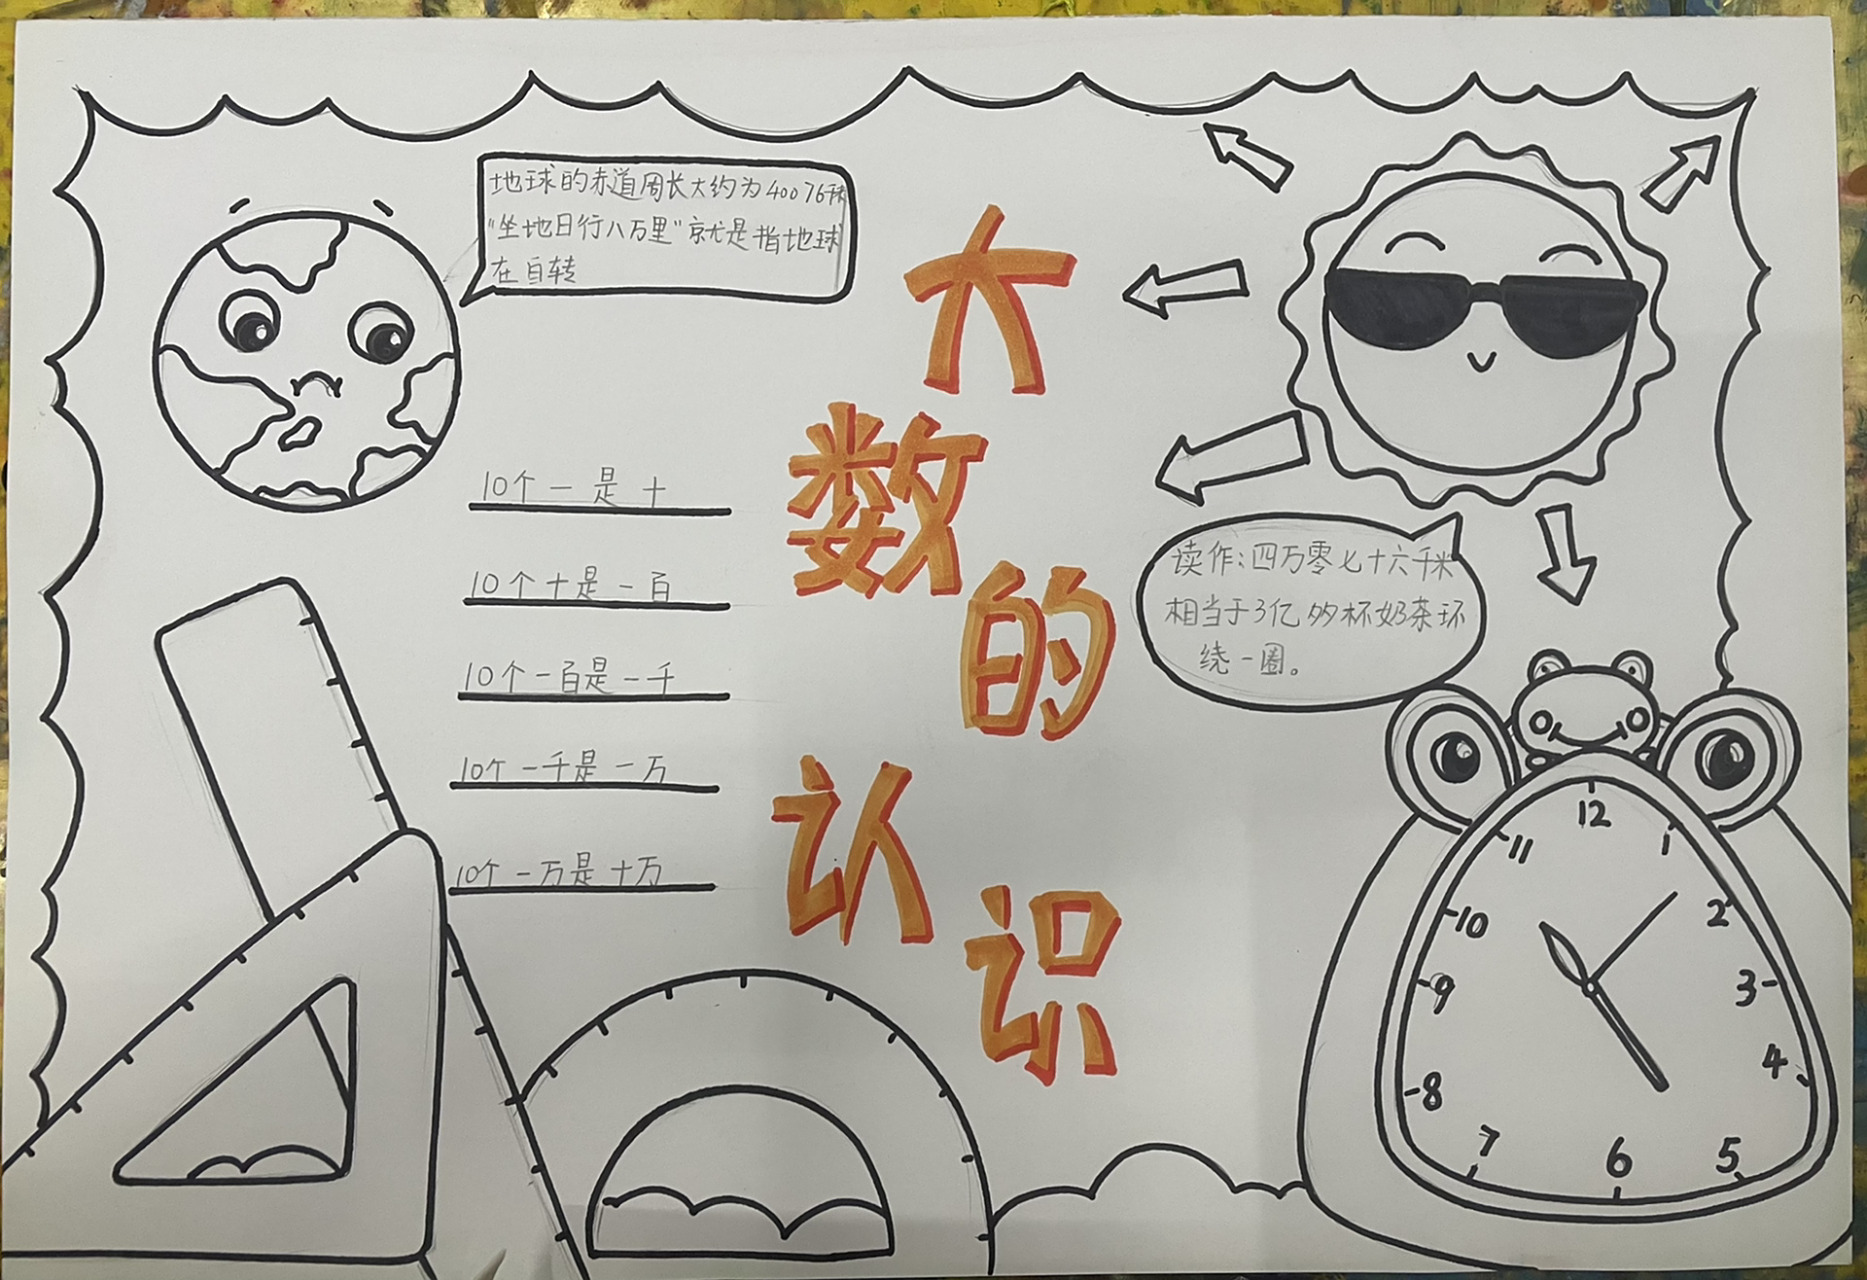 地球的赤道周长大约为40076千米
“坐地日行八万里”就是指地球
在自转
大
数
的
认
识
10个一是十
10个十是一百
10个一百是一千
10个一千是一万
10个一万是十万
读作:四万零七十六千米
相当于3亿多杯奶茶环
绕一圈。
12
11
1
10
2
9
3
8
4
7
6
5